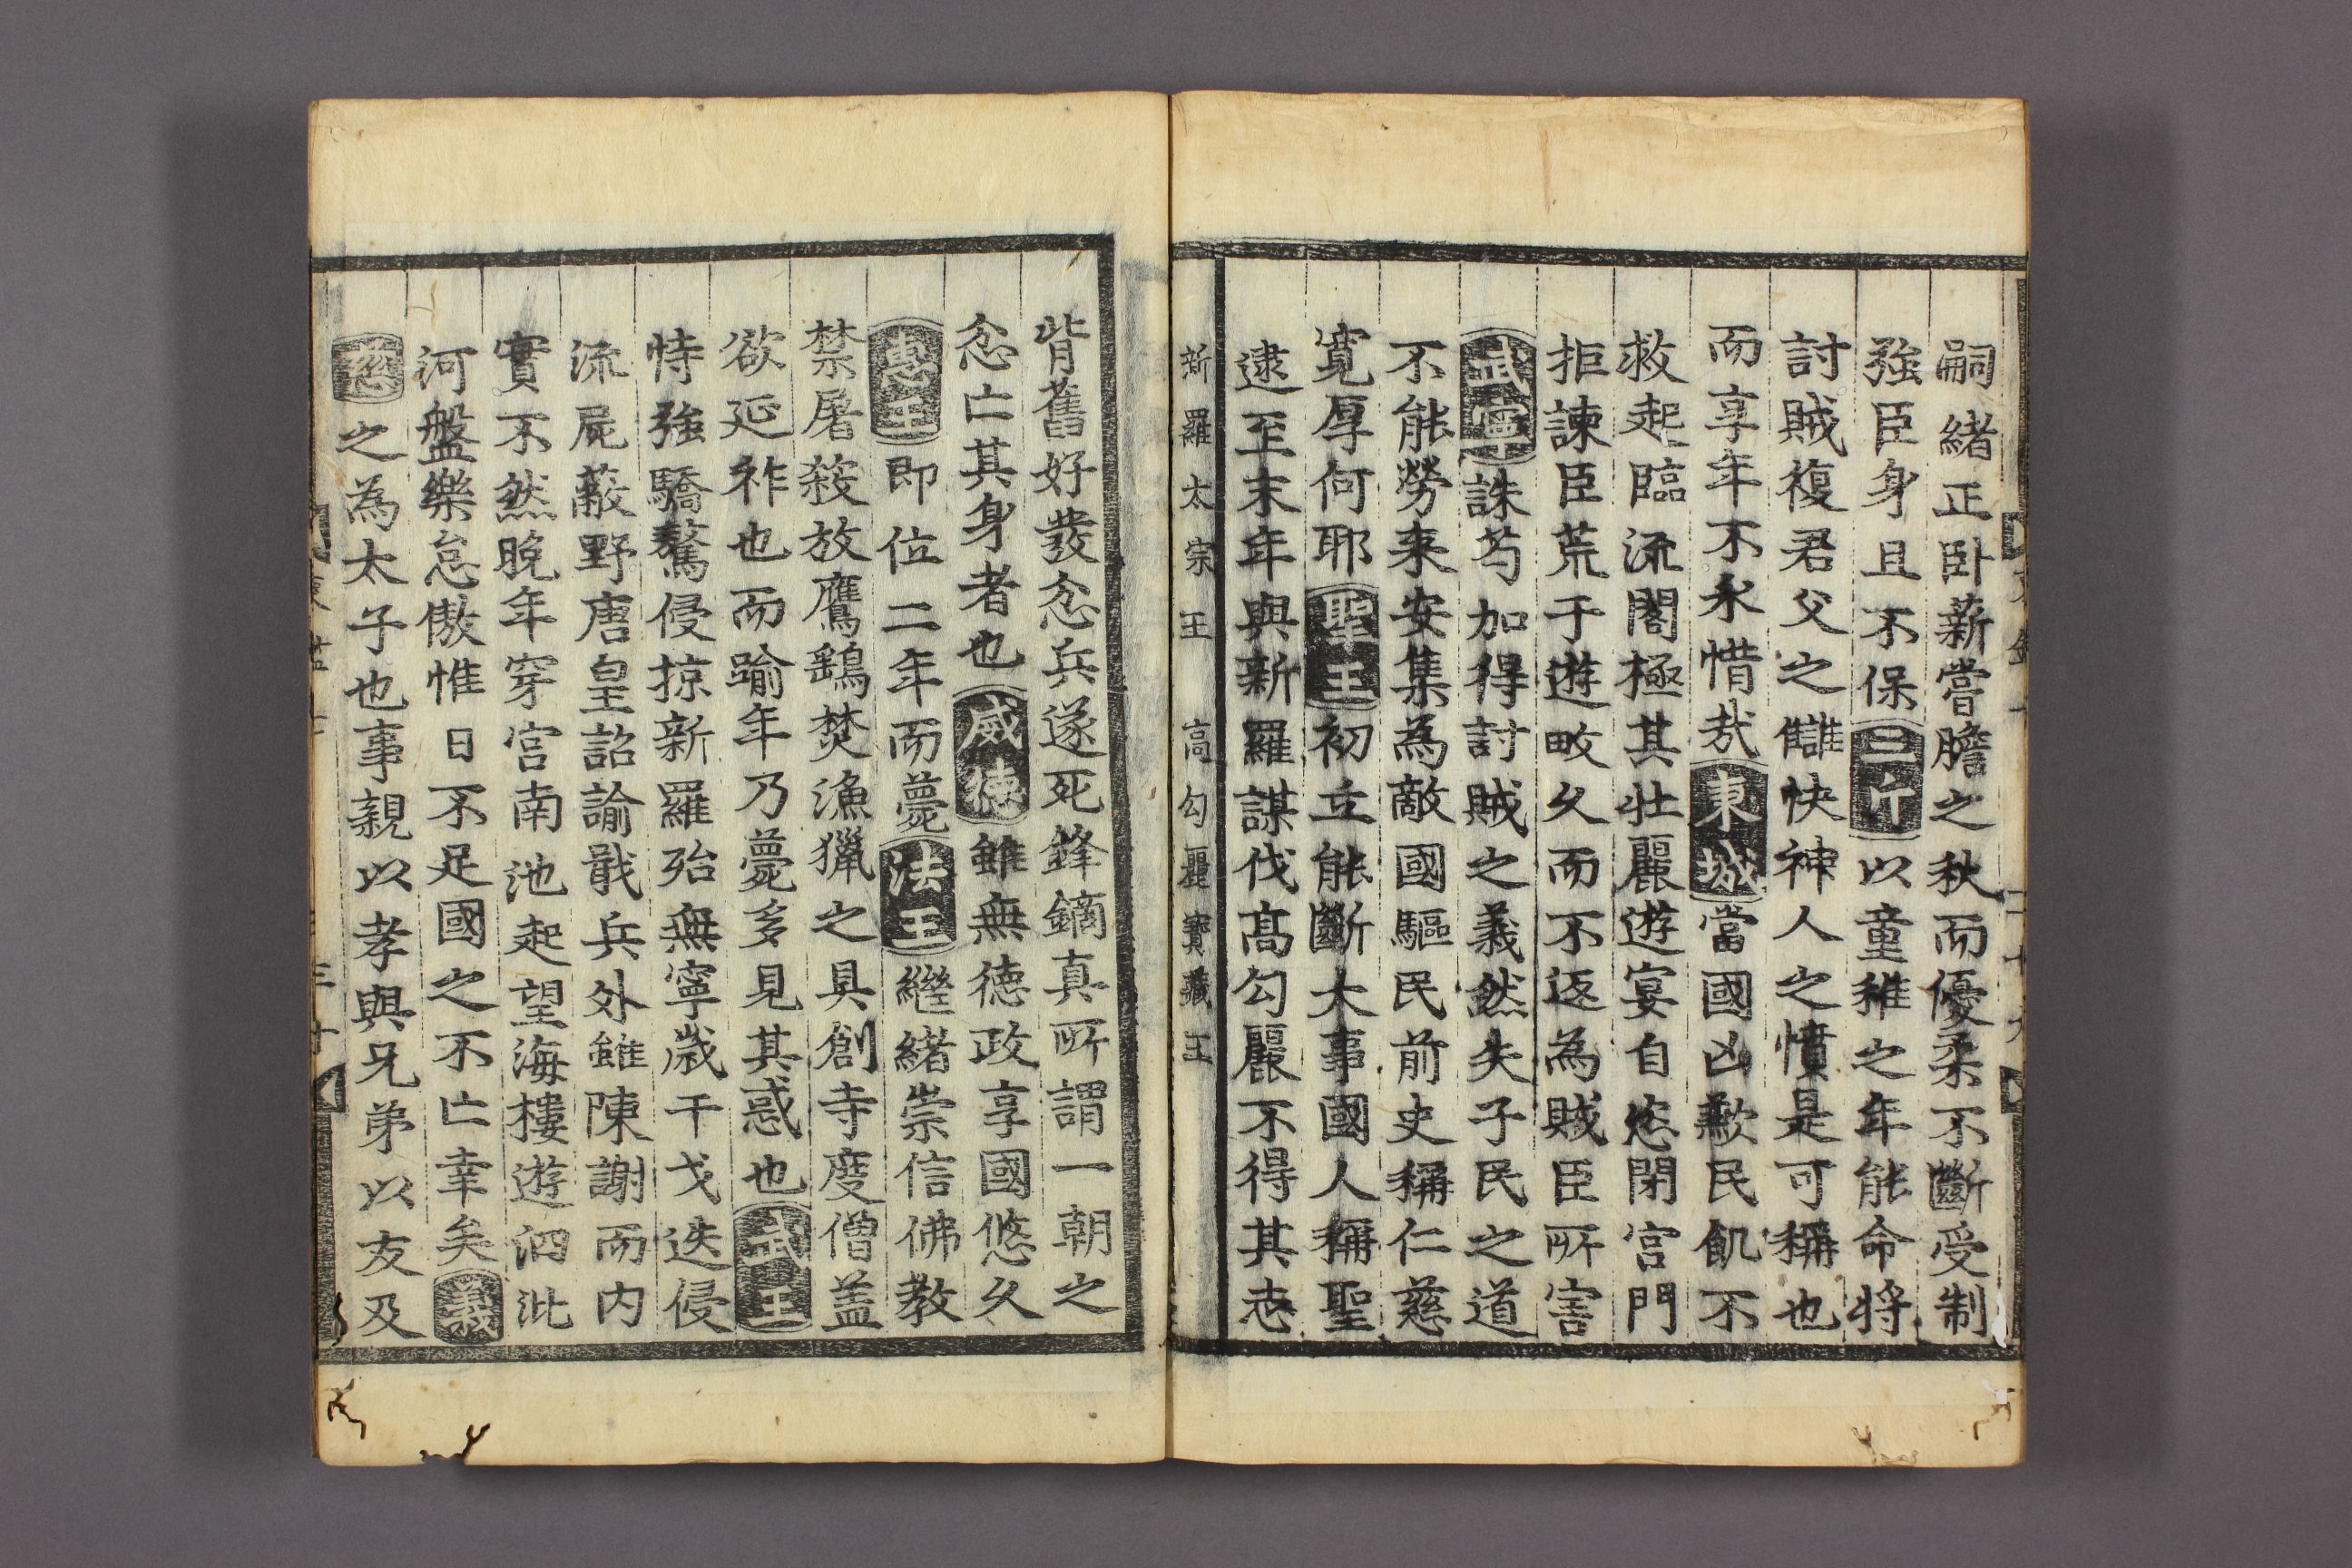 嗣緖正卧薪嘗膽之秋而優柔不斷受制
強臣身且不保三斤以童稚之年能命將
討賊復君父之讎快神人之憤是可稱也
而享年不永惜㢤東城當國凶歉民飢不
救起臨流閣極其壯麗遊宴自恣閉宮門
拒諫臣荒于遊畋久而不返為賊臣所害
武寧誅芍加得討賊之義然失子民之道
不能勞來安集為敵國驅民前史稱仁慈
寛厚何耶聖王初立能斷大事國人稱聖
逮至末年與新羅謀伐髙勾麗不得其志
新羅太宗王 高勾麗寶藏王
背舊好發忿兵遂死鋒鏑真所謂一朝之
忿亡其身者也威德雖無徳政享國悠久
惠王即位二年而薨法王繼緖崇信佛教
禁屠殺放鷹鷂焚漁獵之具創寺度僧盖
欲延祚也而踰年乃薨多見其惑也武王
恃強驕驁侵掠新羅殆無寧歲干戈迭侵
流屍蔽野唐皇詔諭戢兵外雖陳謝而内
實不然晩年穿宮南池起望海樓遊泗沘
河盤樂怠傲惟日不足國之不亡幸矣義
慈之為太子也事親以孝與兄弟以友及